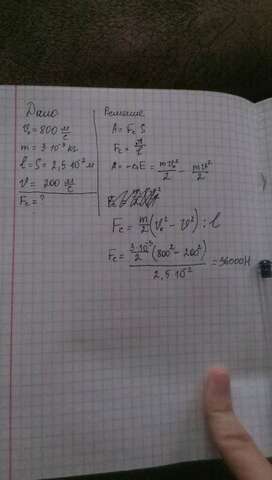 Дано
v₀ = 800 м/с
m = 3·10⁻³ кг
l = S = 2,5·10⁻² м
v = 200 м/с
Fc = ?
Решение
A = Fc S
A = -ΔE = mv₀²/2 - mv²/2
Fc = m/2 (v₀² - v²) : l
Fc = 3·10⁻³/2 (800² - 200²) / 2,5·10⁻² = 36000 Н